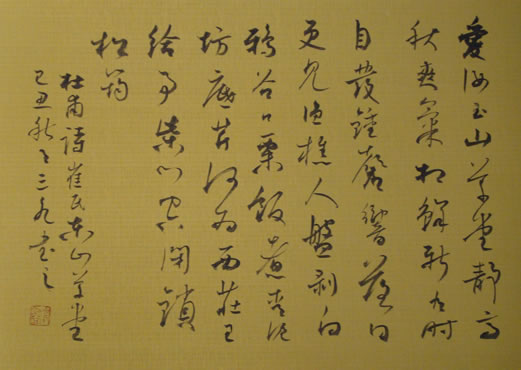 愛汝玉山草堂靜高
秋爽氣相鮮新有時
自發鍾磬響落日
更見漁樵人盤剥白
鴉谷口栗飯煮青泥
坊底芹何為西莊王
給事柴門空閉鎖
松筠
杜甫詩崔氏東山草堂
己丑秋 書之